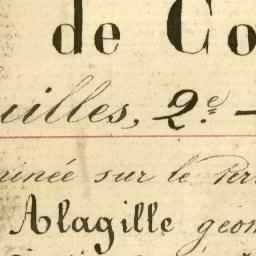 de Co
uilles, 2e
minée sur le Terr
Alagille géom